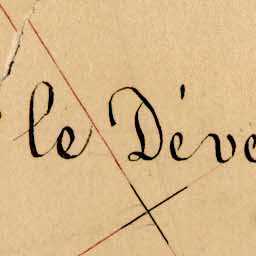 le Déve